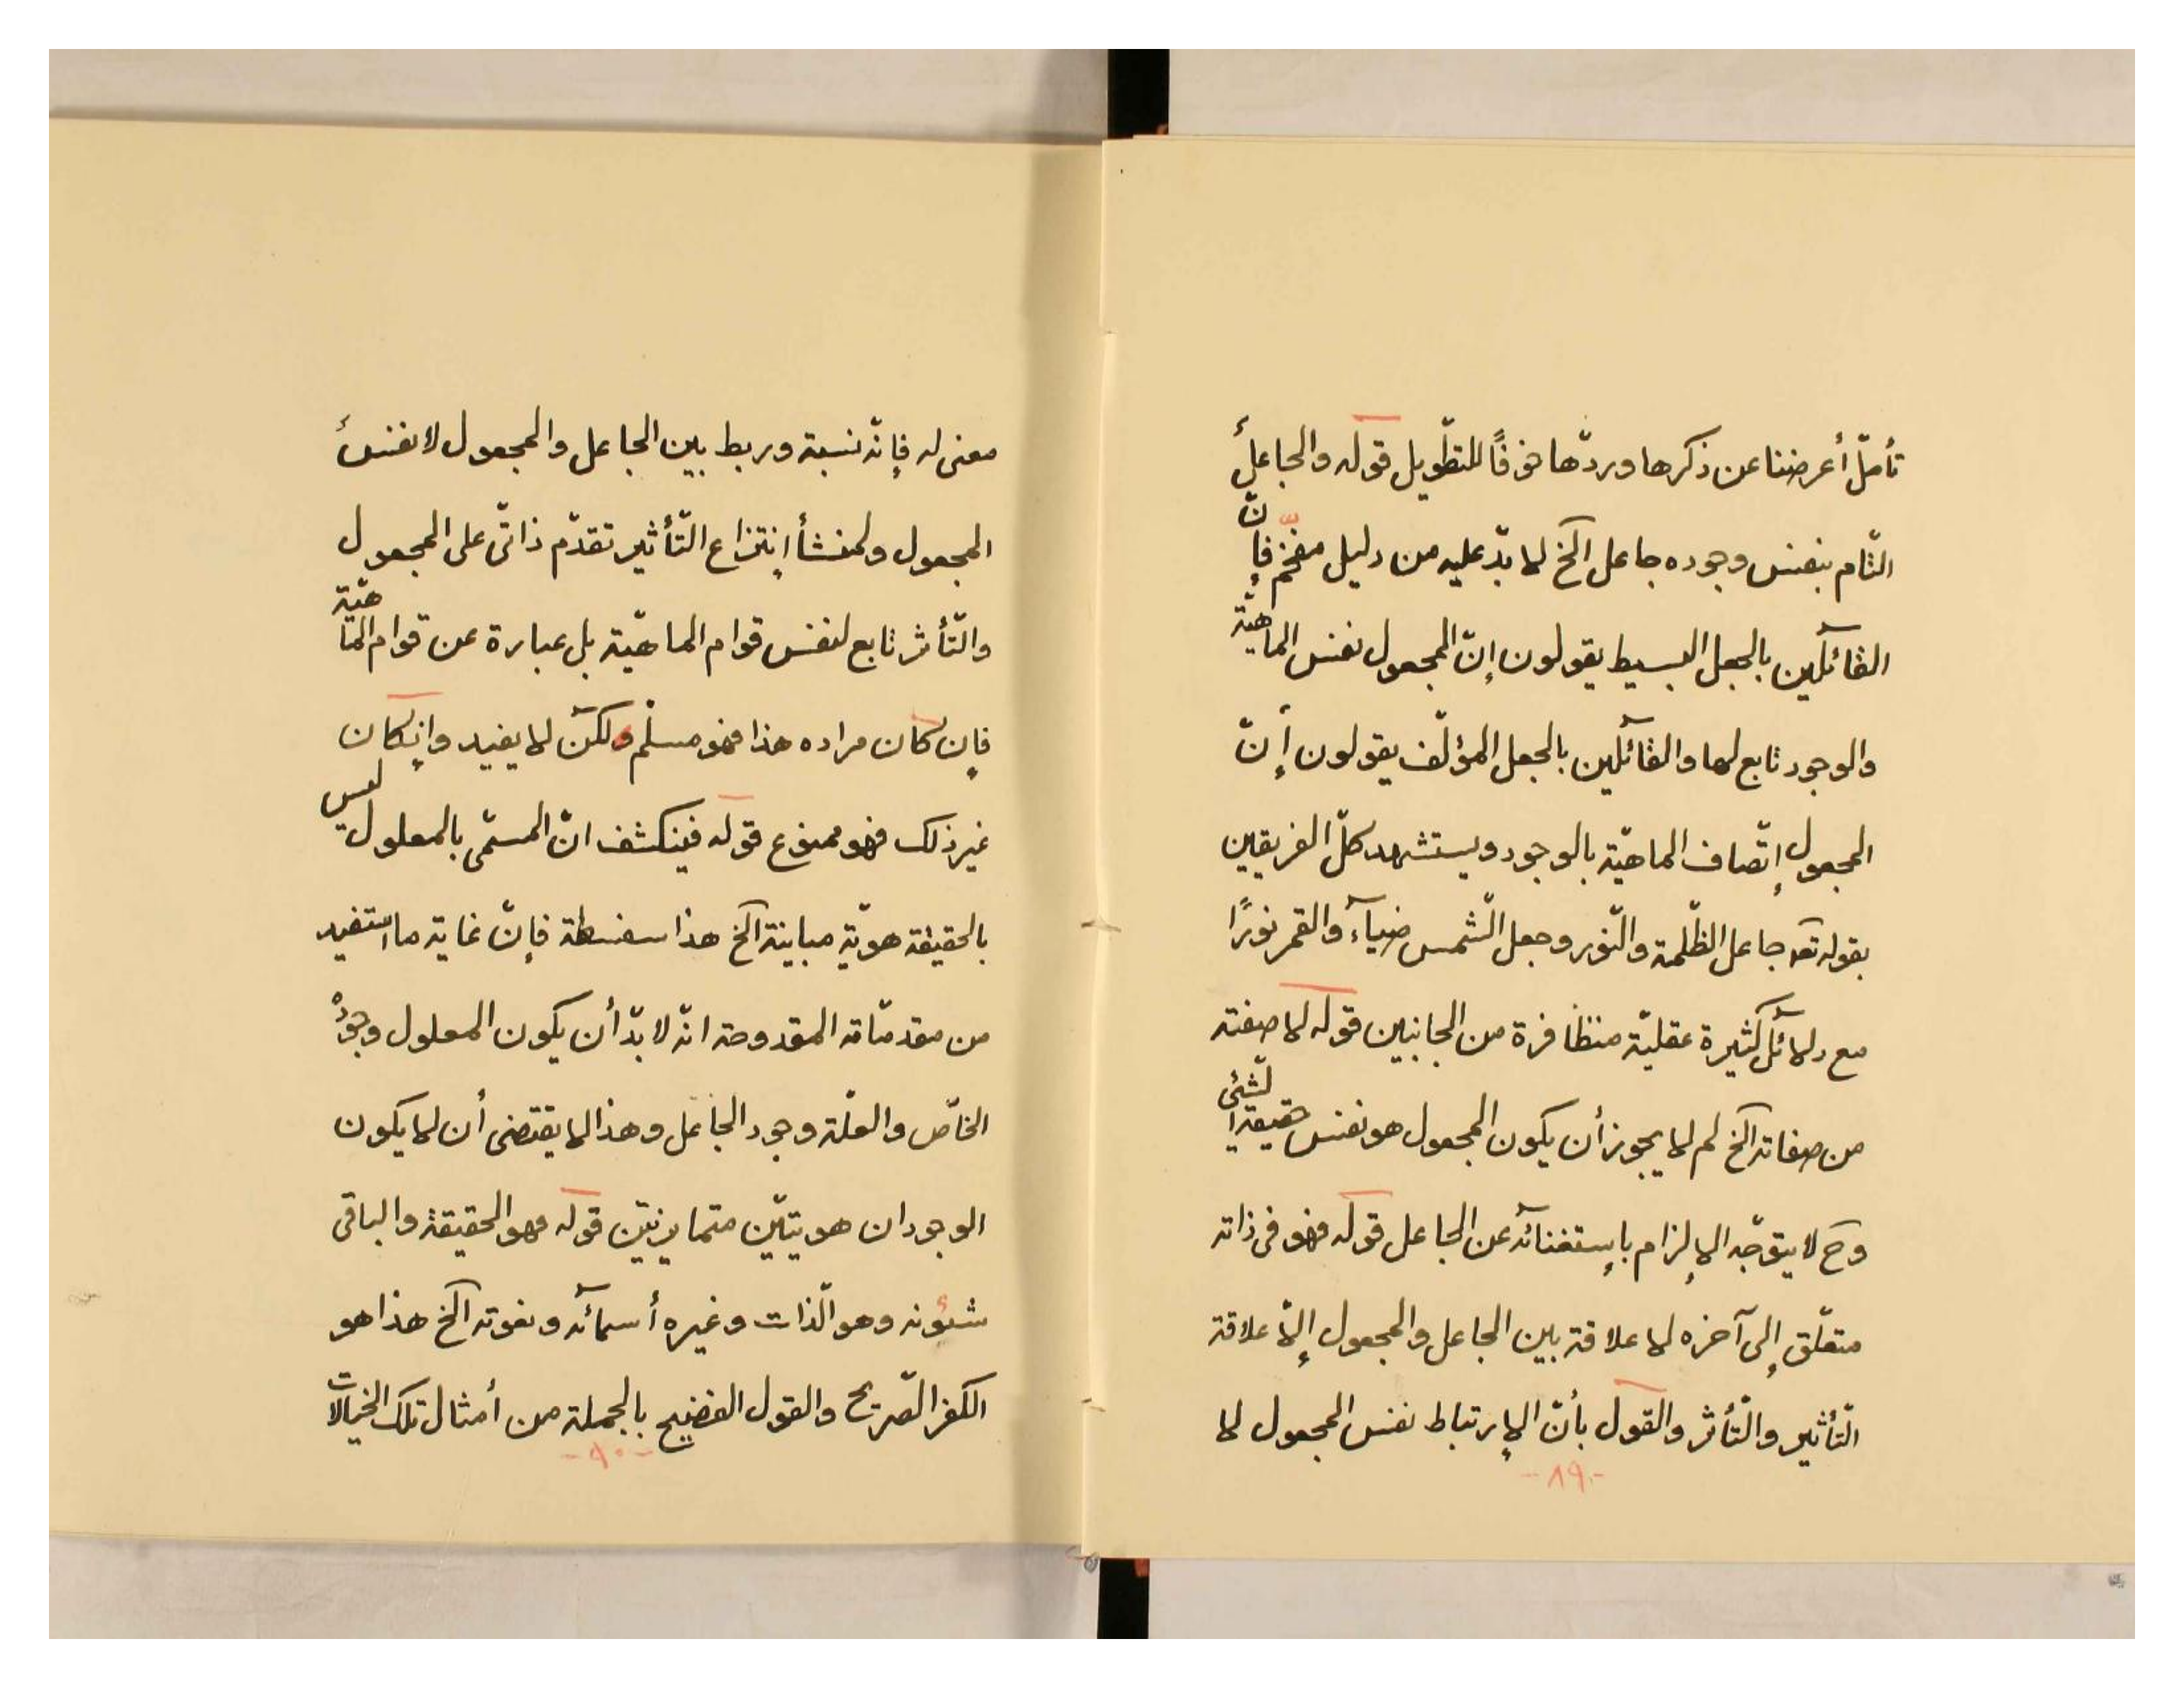 تأمّل أعرضنا عن ذكرها وردّها خوفًا للتطّويل قوله والجاعل
التّام بنفس وجوده جاعل الخ لا بدّ عليه من دليل مفخّم فإنّ
القائلين بالجعل البسيط يقولون إنّ المجعول نفس الماهيّة
والوجود تابع لها والقآئلين بالجعل المؤلّف يقولون إنّ
المجعول إتّصاف الماهيّة بالوجود ويستشهد كلّ الفريقين
بقوله تعه جاعل الظّلمة والنّور وجعل الشّمس ضيآء والقمر نورًا
مع دلآئل كثيرة عقليّة متظافرة من الجانبين قوله لا صفته
من صفاته الخ لم لا يجوز أن يكون المجعول هو نفس حقيقة الشّئ
وح لا يتوجّه الإلزام بإستغنآئه عن الجاعل قوله فهو في ذاته
متعلّق إلى آخره لا علاقة بين الجاعل والمجعول إلّا علاقة
التّأثير والتّأثر والقول بأنّ الإرتباط نفس المجعول لا
-٨٩-
معنى له فإنّه نسبة وربط بين الجاعل والمجعول لا نفس
المجعول ولمنشأ إنتزاع التّأثير تقدّم ذاتّى على المجعول
والتّأثر تابع لنفس قوام الماهيّة بل عبارة عن قوام الماهيّة
فإن كان مراده هذا فهو مسلّم ولكن لا يفيد وإن كان
غير ذلك فهو ممنوع قوله فينكشف انّ المسمّى بالمعلول ليس
بالحقيقة هويّة مباينة الخ هذا سفسطة فإنّ غاية ما استفيد
من مقدمّاته المقدوحة انّه لا بدّ أن يكون المعلول وجوده
الخاصّ والعلّة وجود الجاعل وهذا لا يقتضى أن لا يكون
الوجودان هويتيّن متمايزتيّن قوله فهو الحقيقة والباقى
شئونه وهو الّذات وغيره أسمآئه ونعوته الخ هذا هو
الكفر الصّريح والقول الفضيح بالجملة من أمثال تلك الخيالات
-٩٠-